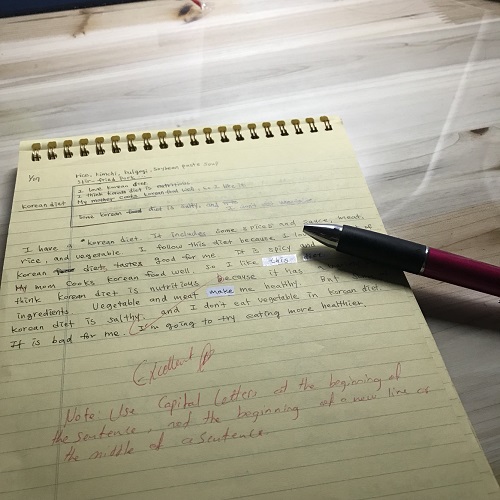 Yin
Rice, kimchi, bulgogi, soybean paste soup
Stir-fried pork
I love korean diet.
I think korean diet is nutritious.
Korean diet
My mother cooks korean food well, so I like it.
korean food diet is salty, and
I have a korean diet. It includes some spices and sauce, meat,
rice, and vegetable. I follow this diet because I of
korean food diets tastes good for me. It is spicy and
My mom cooks korean food well. So I like this diet
think korean diet is nutritious because it has
ingredients. Vegetable and meat make me healthy. But
korean diet is salthy. and I don't eat vegetable in korean diet.
It is bad for me. I'm going to try eating more healthier.
Excellent
Note: Use Capital Letters at the beginning of
the sentence, not the beginning of a new line or
the middle of a sentence